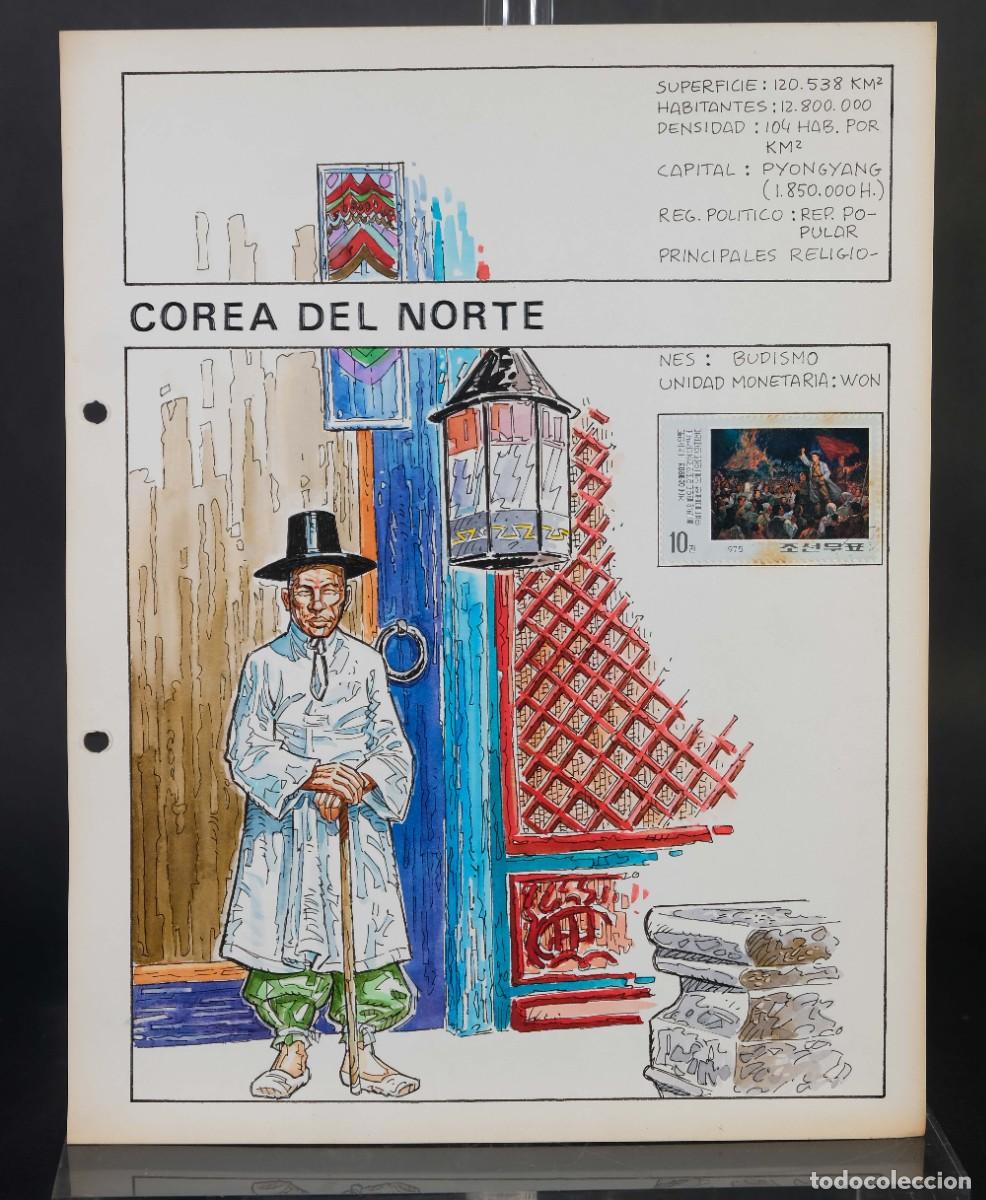 SUPERFICIE: 120.538 KM²
HABITANTES: 12.800.000
DENSIDAD: 104 HAB. POR
KM²
CAPITAL: PYONGYANG
(1.850.000 H.)
REG. POLITICO: REP. PO-
PULAR
PRINCIPALES RELIGIO-
COREA DEL NORTE
NES: BUDISMO
UNIDAD MONETARIA: WON
10전
1975
조선우표
todocoleccion